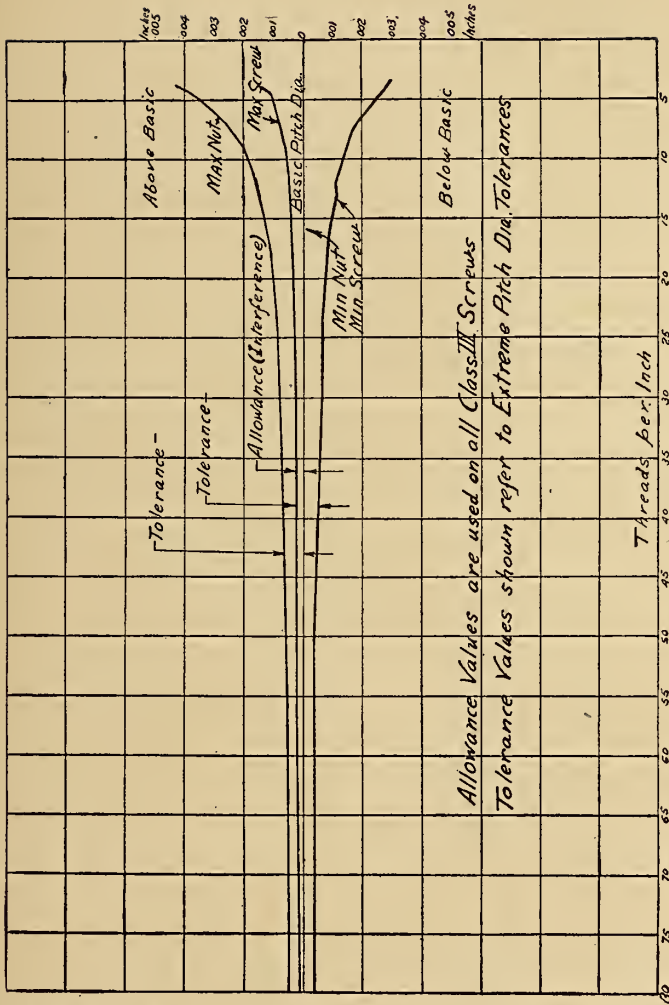 Inches
.005
.004
.003
.002
.001
0
.001
.002
.003
.004
.005
Inches
Above Basic
Max Nut
Max Screw
Basic Pitch Dia.
Below Basic
Min Nut
Min Screw
Allowance (Interference)
Tolerance
Tolerance
Allowance Values are used on all Class III Screws
Tolerance Values shown refer to Extreme Pitch Dia. Tolerances
Threads per Inch
5
10
15
20
25
30
35
40
45
50
55
60
65
70
75
80